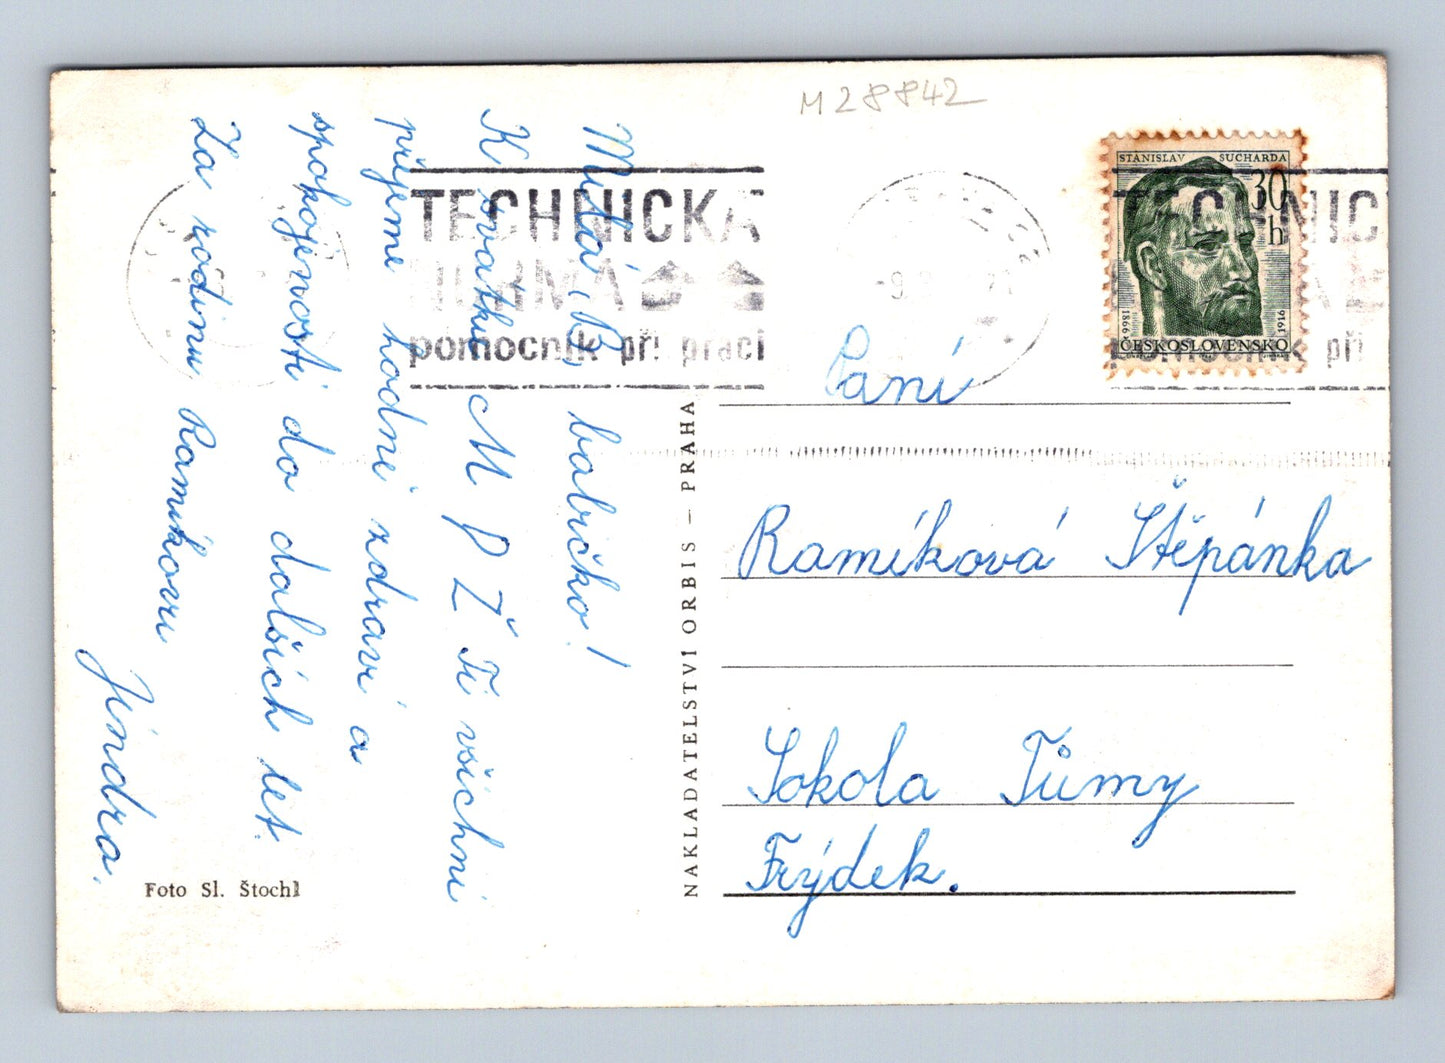 M 28842
Milá, B, babičko!
K svátku M D Ž Ti všichni
přijeme hodně zdraví a
spokojenosti do dalších let.
Za rodinu Ramíkovu
Jindra.
Foto Sl. Štochl
TECHNICKÁ
NORMA
pomocník při práci
NAKLADATELSTVÍ ORBIS — PRAHA
STANISLAV SUCHARDA
30 h
1866
1916
ČESKOSLOVENSKO
TECHNIC
při
Paní
Ramíková Štěpánka
Sokola Tůmy
Frýdek.